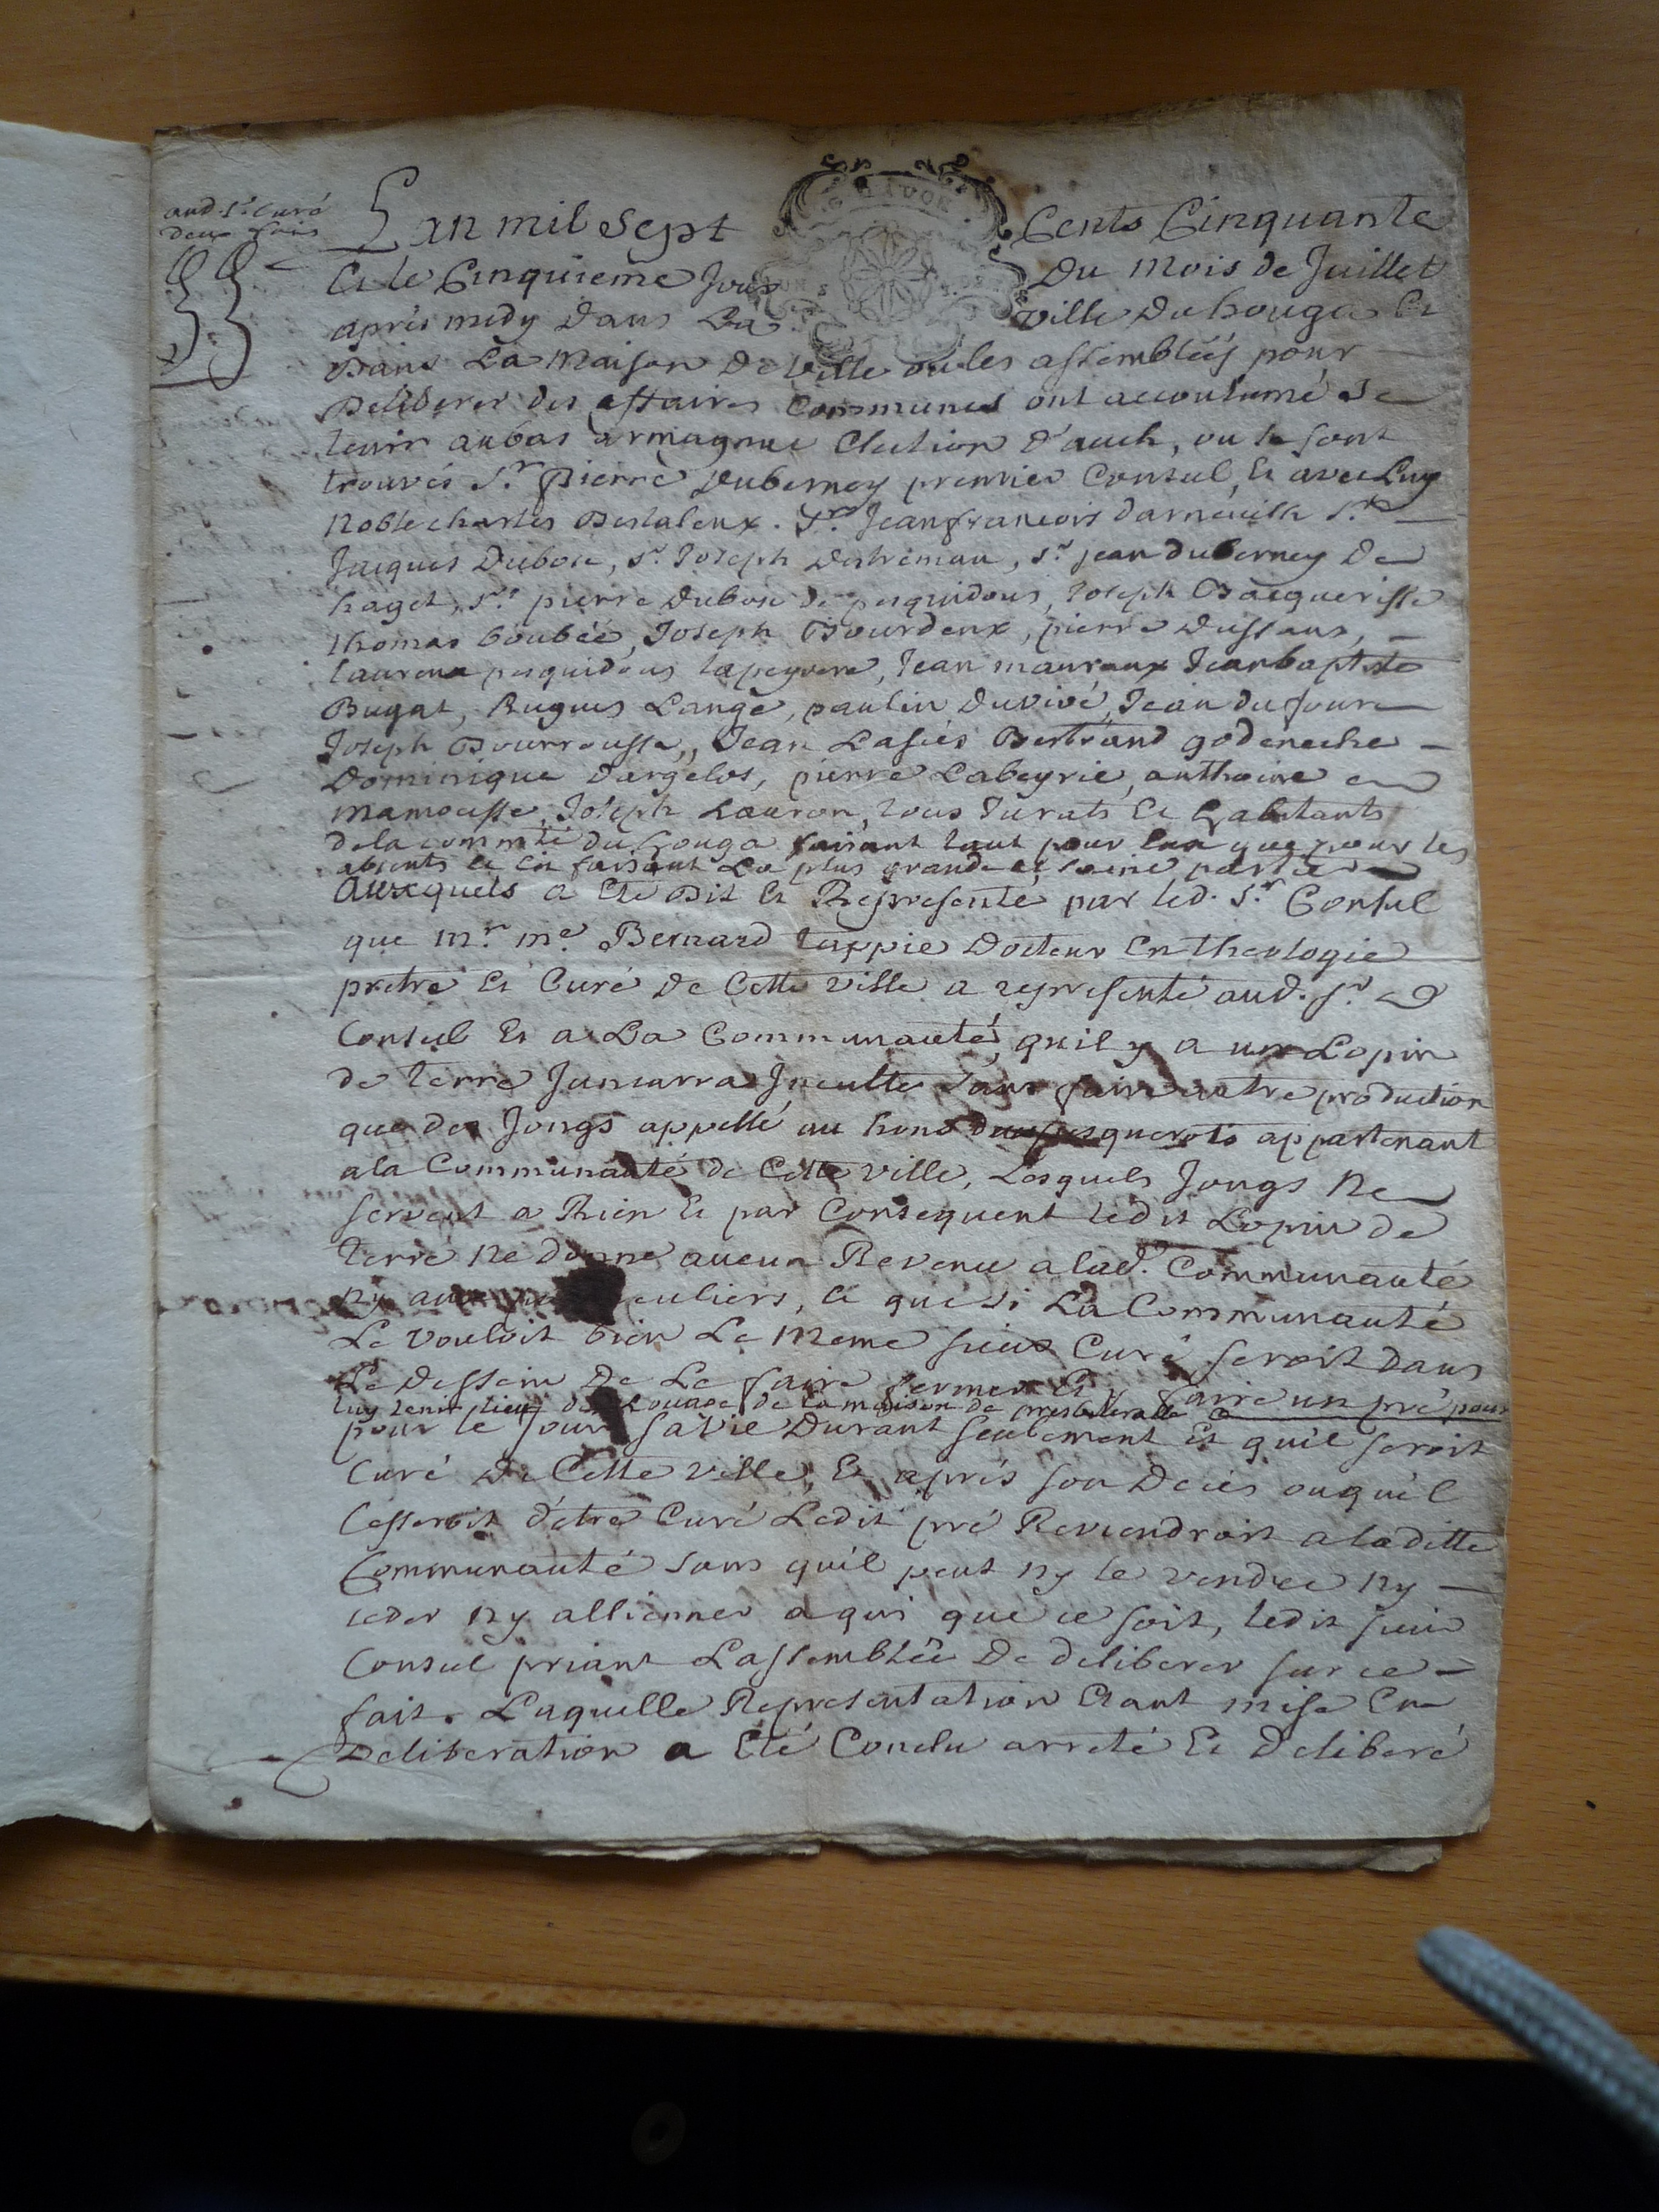 aud. sr. curé
deux fois
L'an mil sept Cents Cinquante
Et le Cinquieme Jour Du Mois de Juillet
apres midy dans La ville Du houga Et
Dans La Maison De Ville ou les assemblées pour
Deliberer des affaires Communes ont accoutumé de
tenir au bas armagnac Election d'auch, ou se sont
trouvés Sr. Pierre Duberney premier Consul, Et avec Luy
Noble charles Destaleux. Sr. Jean francois darneuilh Sr.
Jacques Dubosc, Sr. Joseph Destremau, Sr. jean duberney De
haget, Sr. pierre Dubosc de pesquidous, Joseph Bacquerisse
thomas boubée, Joseph Bourdeux, pierre Dussans,
Laurens pesquidous lapeyrere, Jean mauraux Jean baptiste
Bugat, Lange, paulin Duvivé, Jean dufour
Joseph Bourrousse, Jean Lasies Bertrand godeneche
Dominique Dargelos, pierre Labeyrie, anthoine
mamousse, Joseph Lauron, tous Jurats Et habitants
de la commté du houga faisant tant pour Eux que pour les
absents et en faisant La plus grande et saine partie
Auxquels a Eté Dit Et Representé par led. Sr. Consul
que mr. me. Bernard tappie Docteur En theologie
pretre Et Curé De Cette ville a representé aud. Sr.
Consul Et a La Communauté, qu'il y a un Lopin
de terre Juncarra Inculte sans faire autre production
que des Jongs appellé au hond pesquerots appartenant
a la Communauté de Cette ville, Lesquels Jongs Ne
servent a Rien Et par Consequent ledit Lopin de
terre Ne donne aucun Revenu a lad. Communauté
Ny aux culiers, Et que si La Communauté
Le vouloit bien Le Meme sieur Curé seroit Dans
Le Dessein De Le faire fermer Et y faire un pré pour
luy tenir lieu de Louage de la maison de presbiteralle
pour le jour sa Vie Durant seulement Et qu'il seroit
Curé De Cette Ville, Et après son Deces ou qu'il
Cesseroit d'etre Curé Ledit pré Reviendroit a laditte
Communauté sans qu'il peut Ny le vendre Ny
ceder Ny allienner a qui que ce soit, Ledit sieur
Consul priant L'assemblée De deliberer sur ce
fait. Laquelle Representation Etant mise En
Deliberation a Eté Conclu arreté Et Deliberé